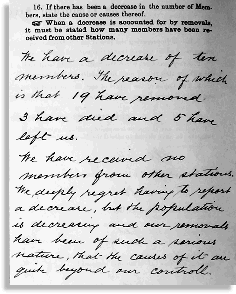 16. If there has been a decrease in the number of Mem-
bers, state the cause or causes thereof.
☞ When a decrease is accounted for by removals,
it must be stated how many members have been re-
ceived from other Stations.
We have a decrease of ten
members. The reason of which
is that 19 have removed
3 have died and 5 have
left us.
We have received no
members from other stations.
We deeply regret having to report
a decrease, but the population
is decreasing and our removals
have been of such a serious
nature, that the causes of it are
quite beyond our controll.